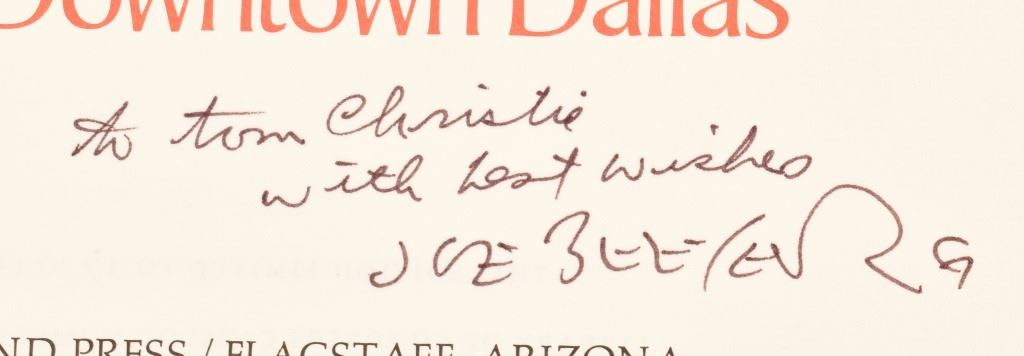 Downtown Dallas
to tom Christie
with best wishes
JOE BEELER
ND PRESS / FLAGSTAFF, ARIZONA